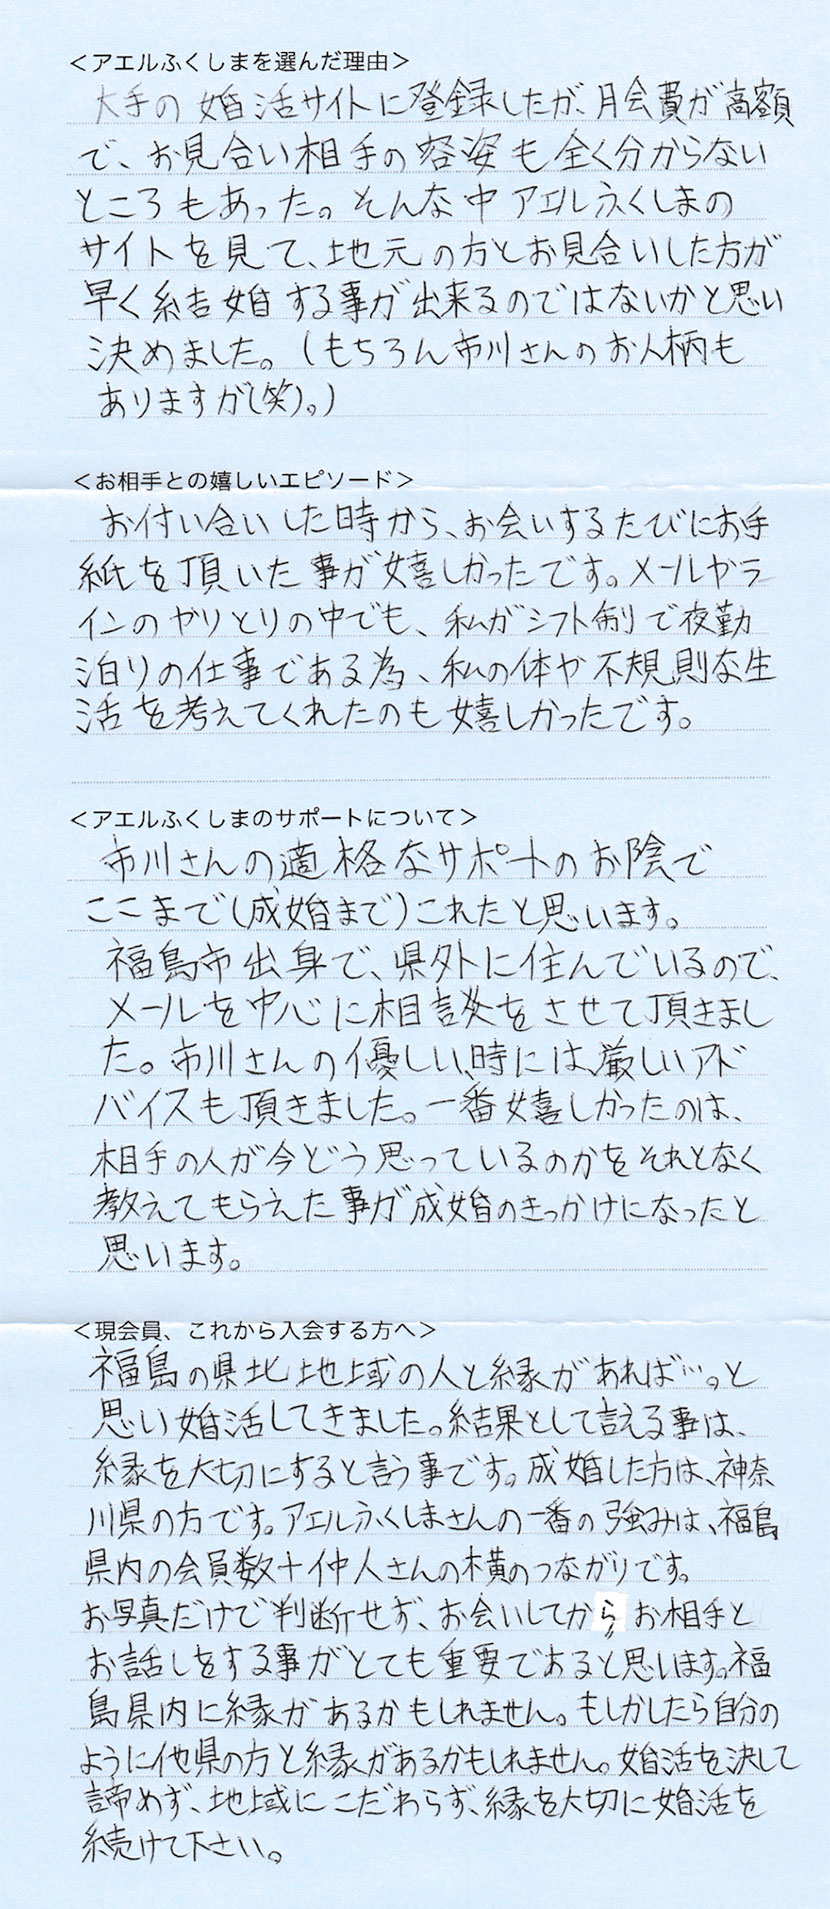 ＜アエルふくしまを選んだ理由＞
大手の婚活サイトに登録したが、月会費が高額
で、お見合い相手の容姿も全く分からない
ところもあった。そんな中アエルふくしまの
サイトを見て、地元の方とお見合いした方が
早く結婚する事が出来るのではないかと思い
決めました。(もちろん市川さんのお人柄も
ありますが(笑)。)
＜お相手との嬉しいエピソード＞
お付い合いした時から、お会いするたびにお手
紙を頂いた事が嬉しかったです。メールやラ
インのやりとりの中でも、私がシフト制で夜勤
泊りの仕事である為、私の体や不規則な生
活を考えてくれたのも嬉しかったです。
＜アエルふくしまのサポートについて＞
市川さんの適格なサポートのお陰で
ここまで(成婚まで)これたと思います。
福島市出身で、県外に住んでいるので、
メールを中心に相談をさせて頂きまし
た。市川さんの優しい、時には、厳しいアド
バイスも頂きました。一番嬉しかったのは、
相手の人が今どう思っているのかをそれとなく
教えてもらえた事が成婚のきっかけになったと
思います。
＜現会員、これから入会する方へ＞
福島の県北地域の人と縁があれば…。と
思い婚活してきました。結果として言える事は、
縁を大切にすると言う事です。成婚した方は、神奈
川県の方です。アエルふくしまさんの一番の強みは、福島
県内の会員数＋仲人さんの横のつながりです。
お写真だけで判断せず、お会いしてからお相手と
お話しをする事がとても重要であると思います。福
島県内に縁があるかもしれません。もしかしたら自分の
ように他県の方と縁があるかもしれません。婚活を決して
諦めず、地域にこだわらず、縁を大切に婚活を
続けて下さい。